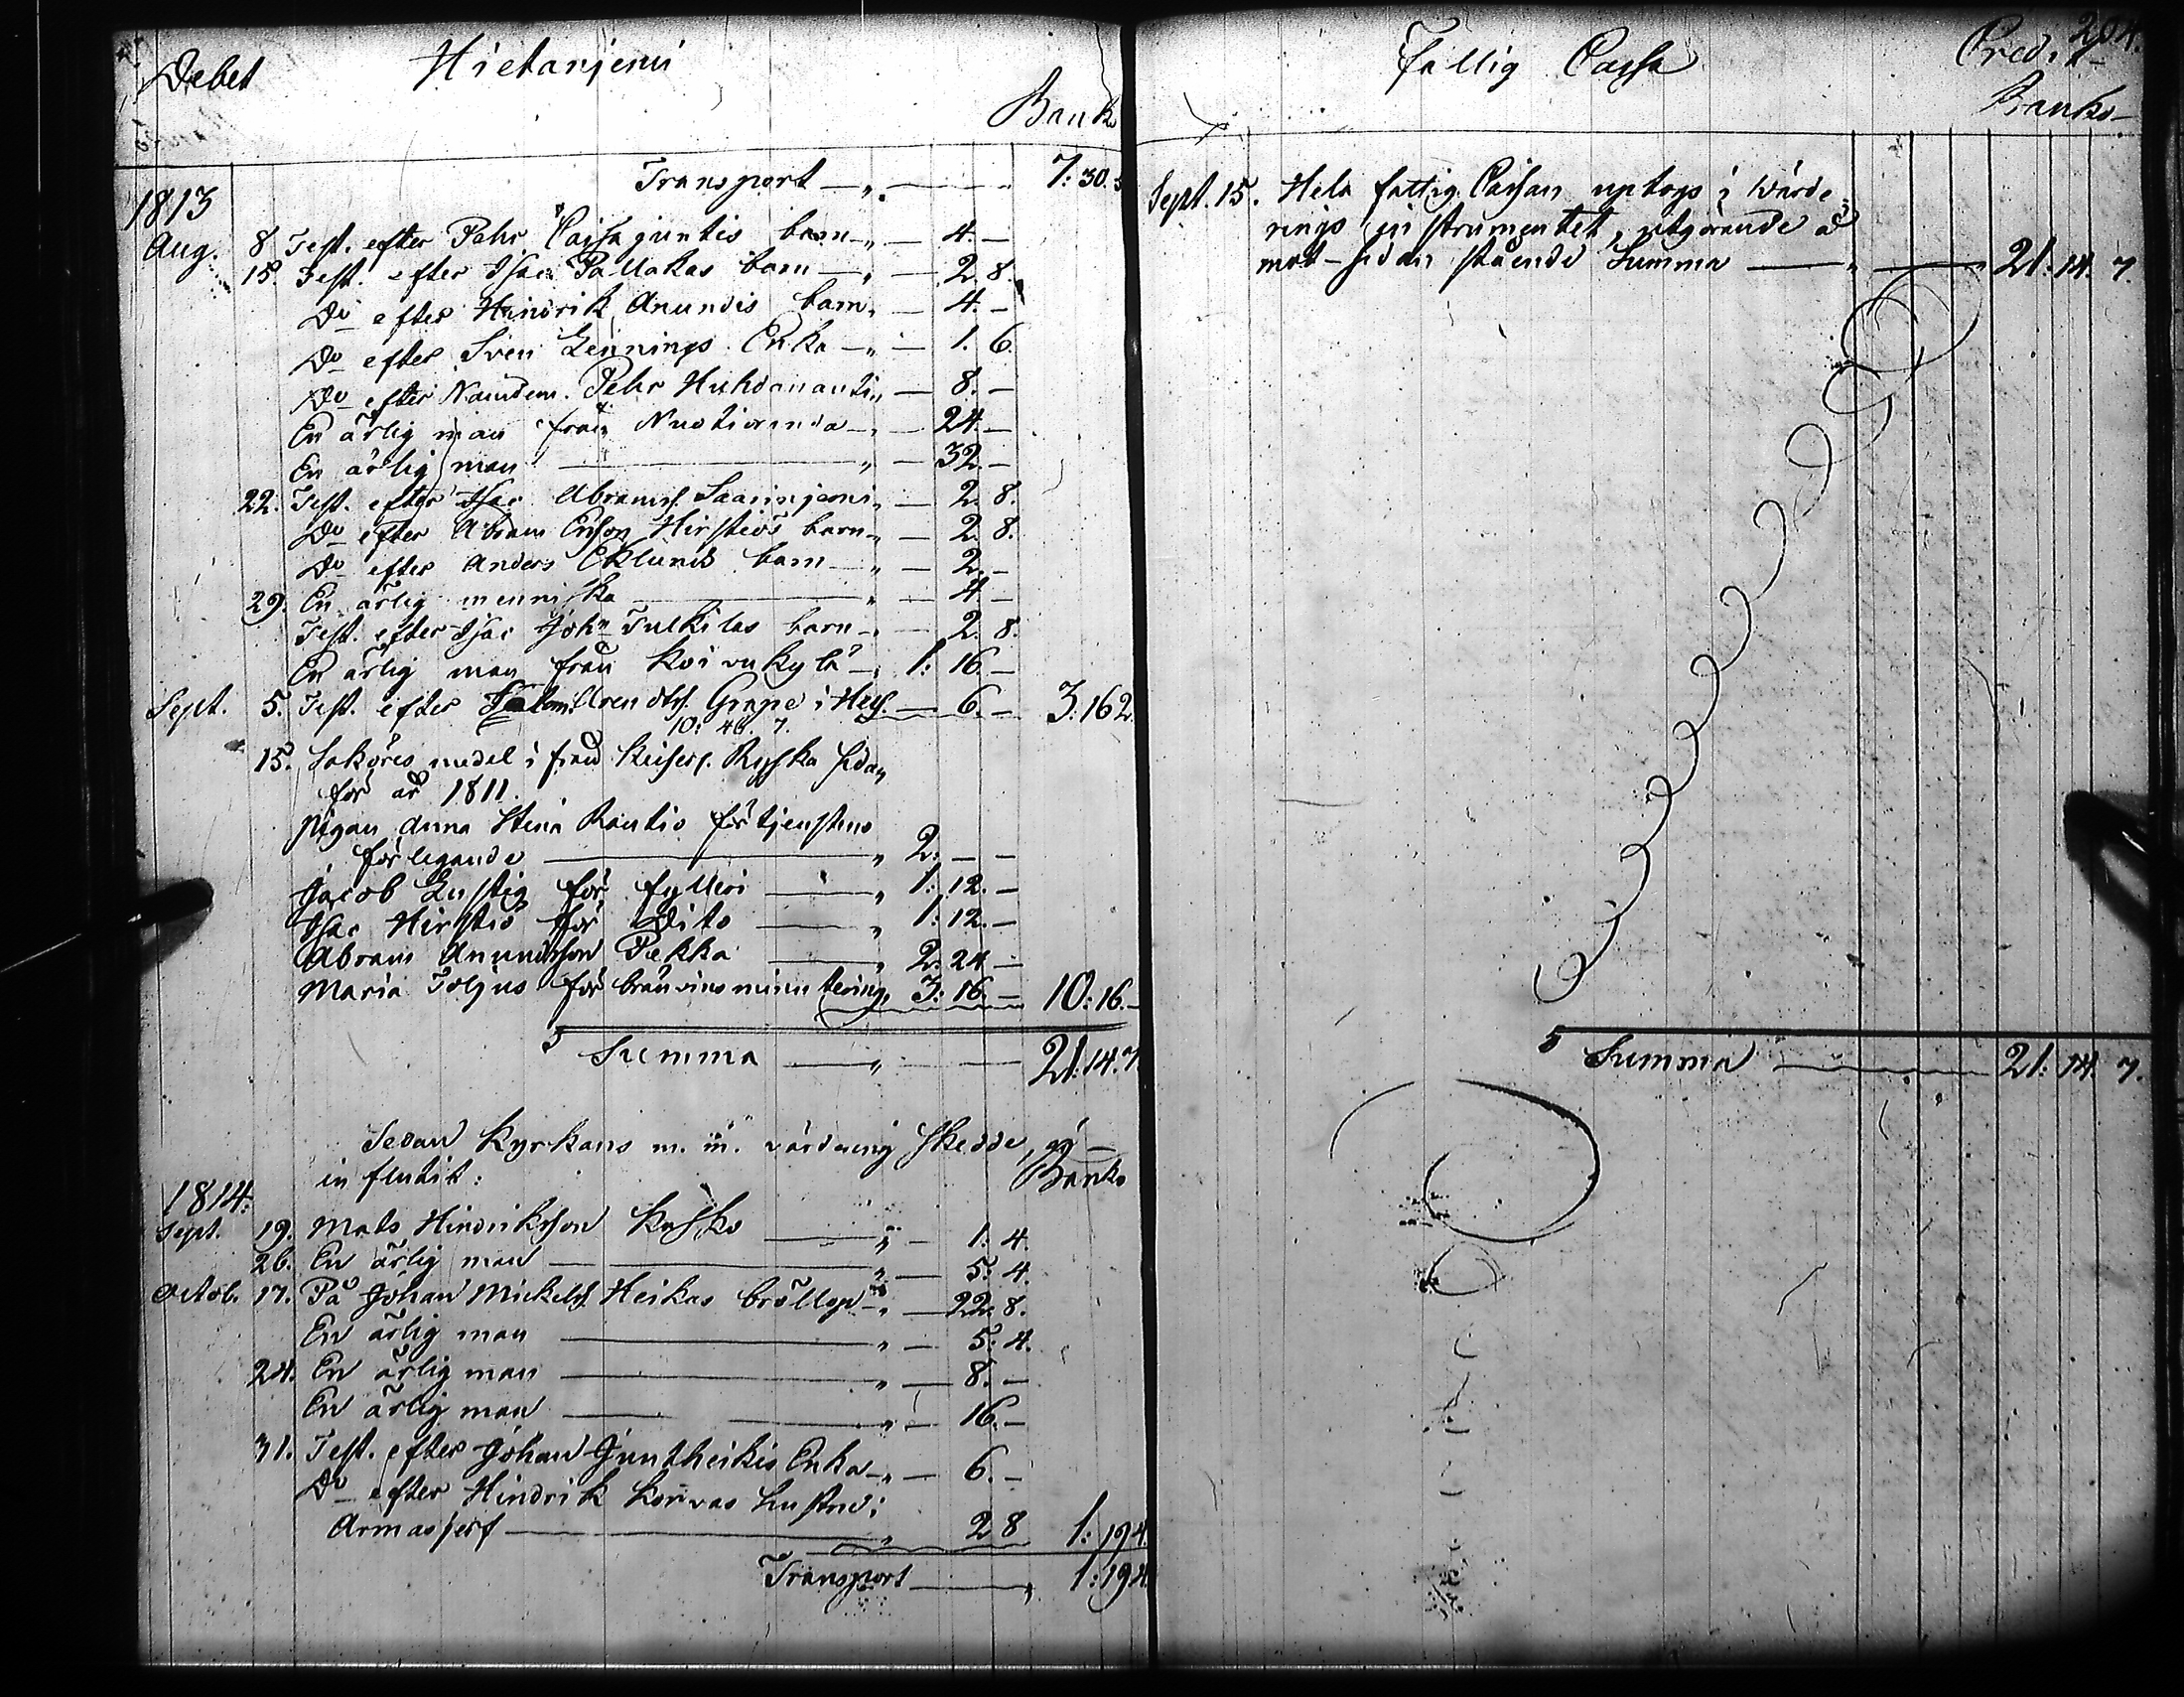 Debet Hietaniemi
Banko
Transport — „ — 7: 30. 5
1813
Aug. 8 Test. efter Pehr Cajsajuntis barn — „ — 4. —
15. Test. efter Isac Pallakas barn — „ — 2. 8.
Do efter Hindrik Anundis barn „ — 4. —
Do efter Sven Lennings Enka — „ — 1. 6.
Do efter Nämdem. Pehr Huhdanantis „ — 8. —
En ärlig man från Nuotioranda — „ — 24. —
En ärlig man — „ — 32. —
22. Test. efter Isac Abramss. Saarinjemi „ — 2. 8.
Do efter Abram Ersson Hirstiös barn „ — 2. 8.
Do efter Anders Eklunds barn — „ — 2. —
29. En ärlig menniska — „ — 4 —
Test. efter Isac Johns Tulkilas barn — „ — 2. 8.
En ärlig man från Koivukylä — „ 1: 16. —
Sept. 5. Test. efter Arendtss. Grape i Hes. — 6. — 3: 16 2.
10: 46. 7.
15. Saköres medel ifrån Keiserl. Ryska sidan
för år 1811.
Pigan Anna Stina Rautio för tjenstens
förlegande — „ 2. — —
Jacob Lustig för fylleri — „ 1: 12. —
Isac Hirstiö för Dito — „ 1: 12. —
Abram Anundsson Pekka — „ 2: 24 —
Maria Toljus för bränvins minutering, 3: 16. — 10: 16. —
Summa — „ — 21: 14. 7.
Sedan Kyrkans m. m. värdering skedde, är
influtit: Banko
1814.
Sept. 19. Mats Hindriksson Kysko — „ — 1: 4.
26. En ärlig man — „ — 5: 4.
Octob. 17. På Johan Mickelss. Heikas bröllop — „ — 22. 8.
En ärlig man — „ — 5: 4.
24. En ärlig man — „ — 8. —
En ärlig man — „ — 16. —
31. Test. efter Johan Juntheikis Enka — „ — 6. —
Do efter Hindrik Korvas hustru i
Armasjerf — „ 2 8 1: 19 4.
Transport — „ 1: 19 4
204.
Fattig Cassa Credit
Banko
Sept. 15. Hela fattig Cassan uptogs i värde
rings instrumentet, utgörande å
mot-sidan stående Summa — „ — 21: 14. 7.
Summa — 21: 14. 7.